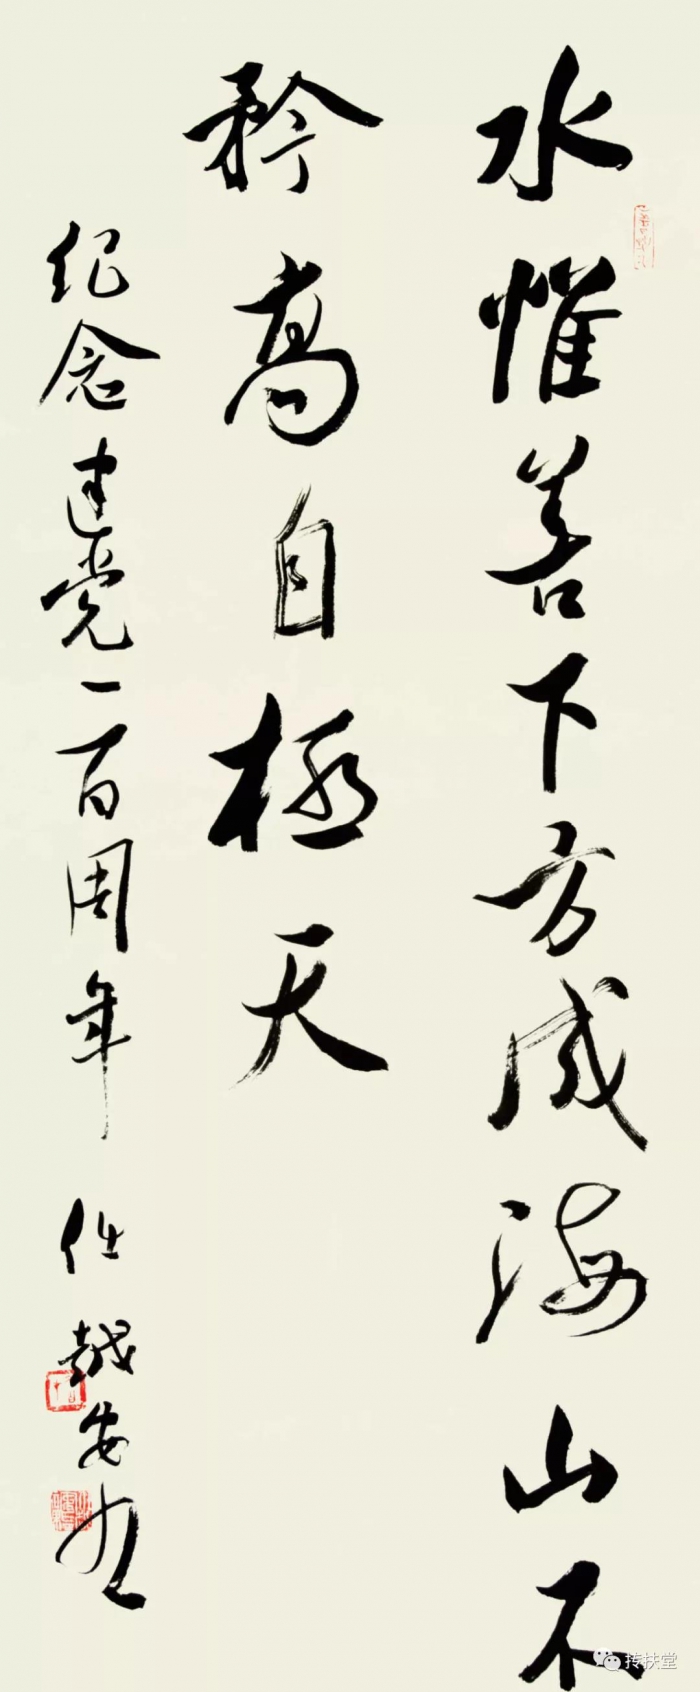 水惟善下方成海山不
矜高自極天
纪念建党一百周年 任越安
抟扶堂